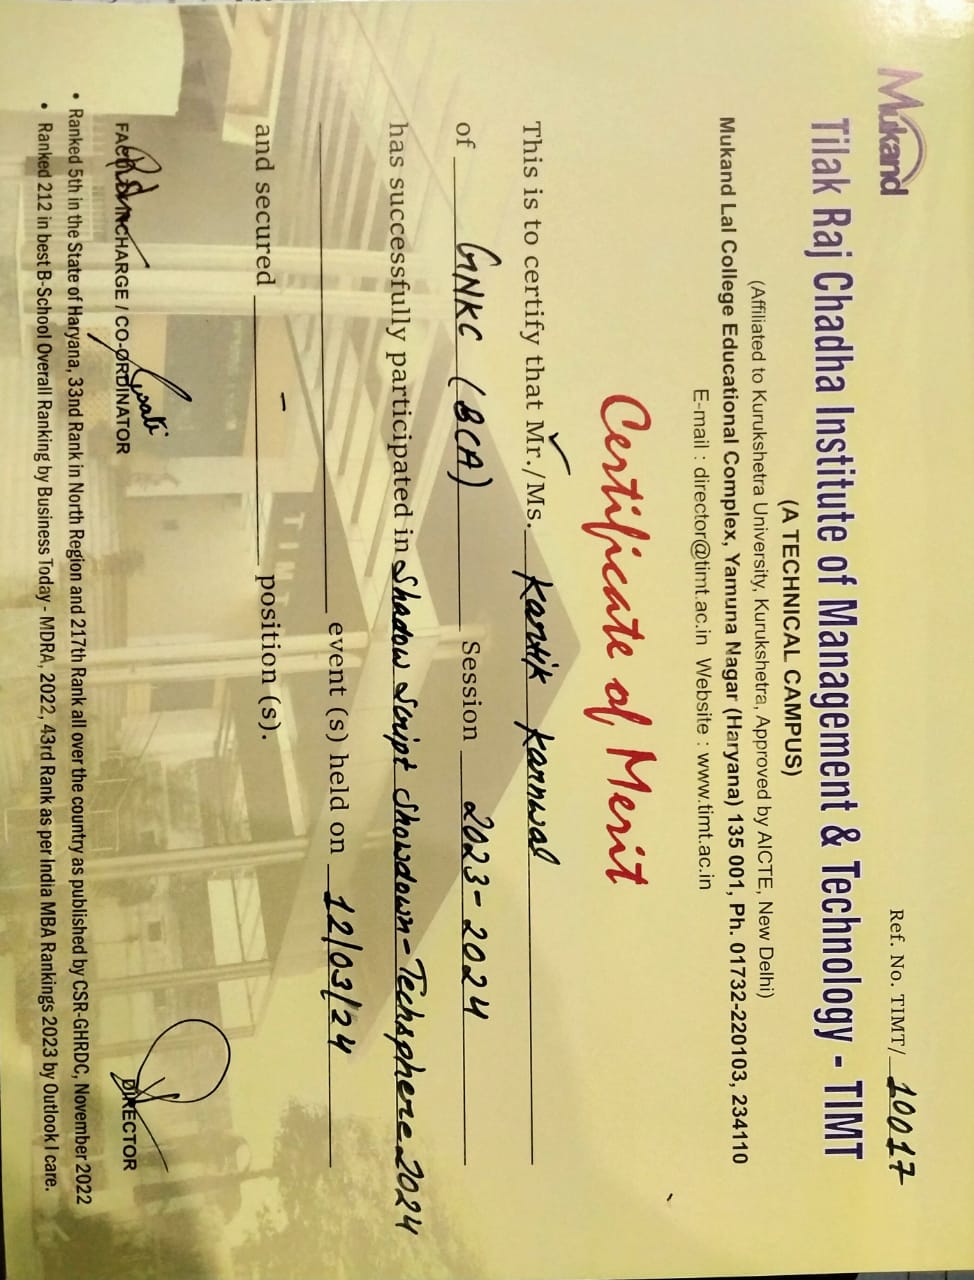 Mukand
Ref. No. TIMT/ 10017
Tilak Raj Chadha Institute of Management & Technology - TIMT
(A TECHNICAL CAMPUS)
(Affiliated to Kurukshetra University, Kurukshetra, Approved by AICTE, New Delhi)
Mukand Lal College Educational Complex, Yamuna Nagar (Haryana) 135 001, Ph. 01732-220103, 234110
E-mail : director@timt.ac.in Website : www.timt.ac.in
Certificate of Merit
This is to certify that Mr./Ms. Kartik Karnwal
of GNKC (BCA) Session 2023-2024
has successfully participated in Shadow Script Showdown-Techsphere 2024
event (s) held on 12/03/24
TIMT
and secured - position (s).
Swati
FACULTY INCHARGE / CO-ORDINATOR
DIRECTOR
• Ranked 5th in the State of Haryana, 33nd Rank in North Region and 217th Rank all over the country as published by CSR-GHRDC, November 2022
• Ranked 212 in best B-School Overall Ranking by Business Today - MDRA, 2022, 43rd Rank as per India MBA Rankings 2023 by Outlook I care.